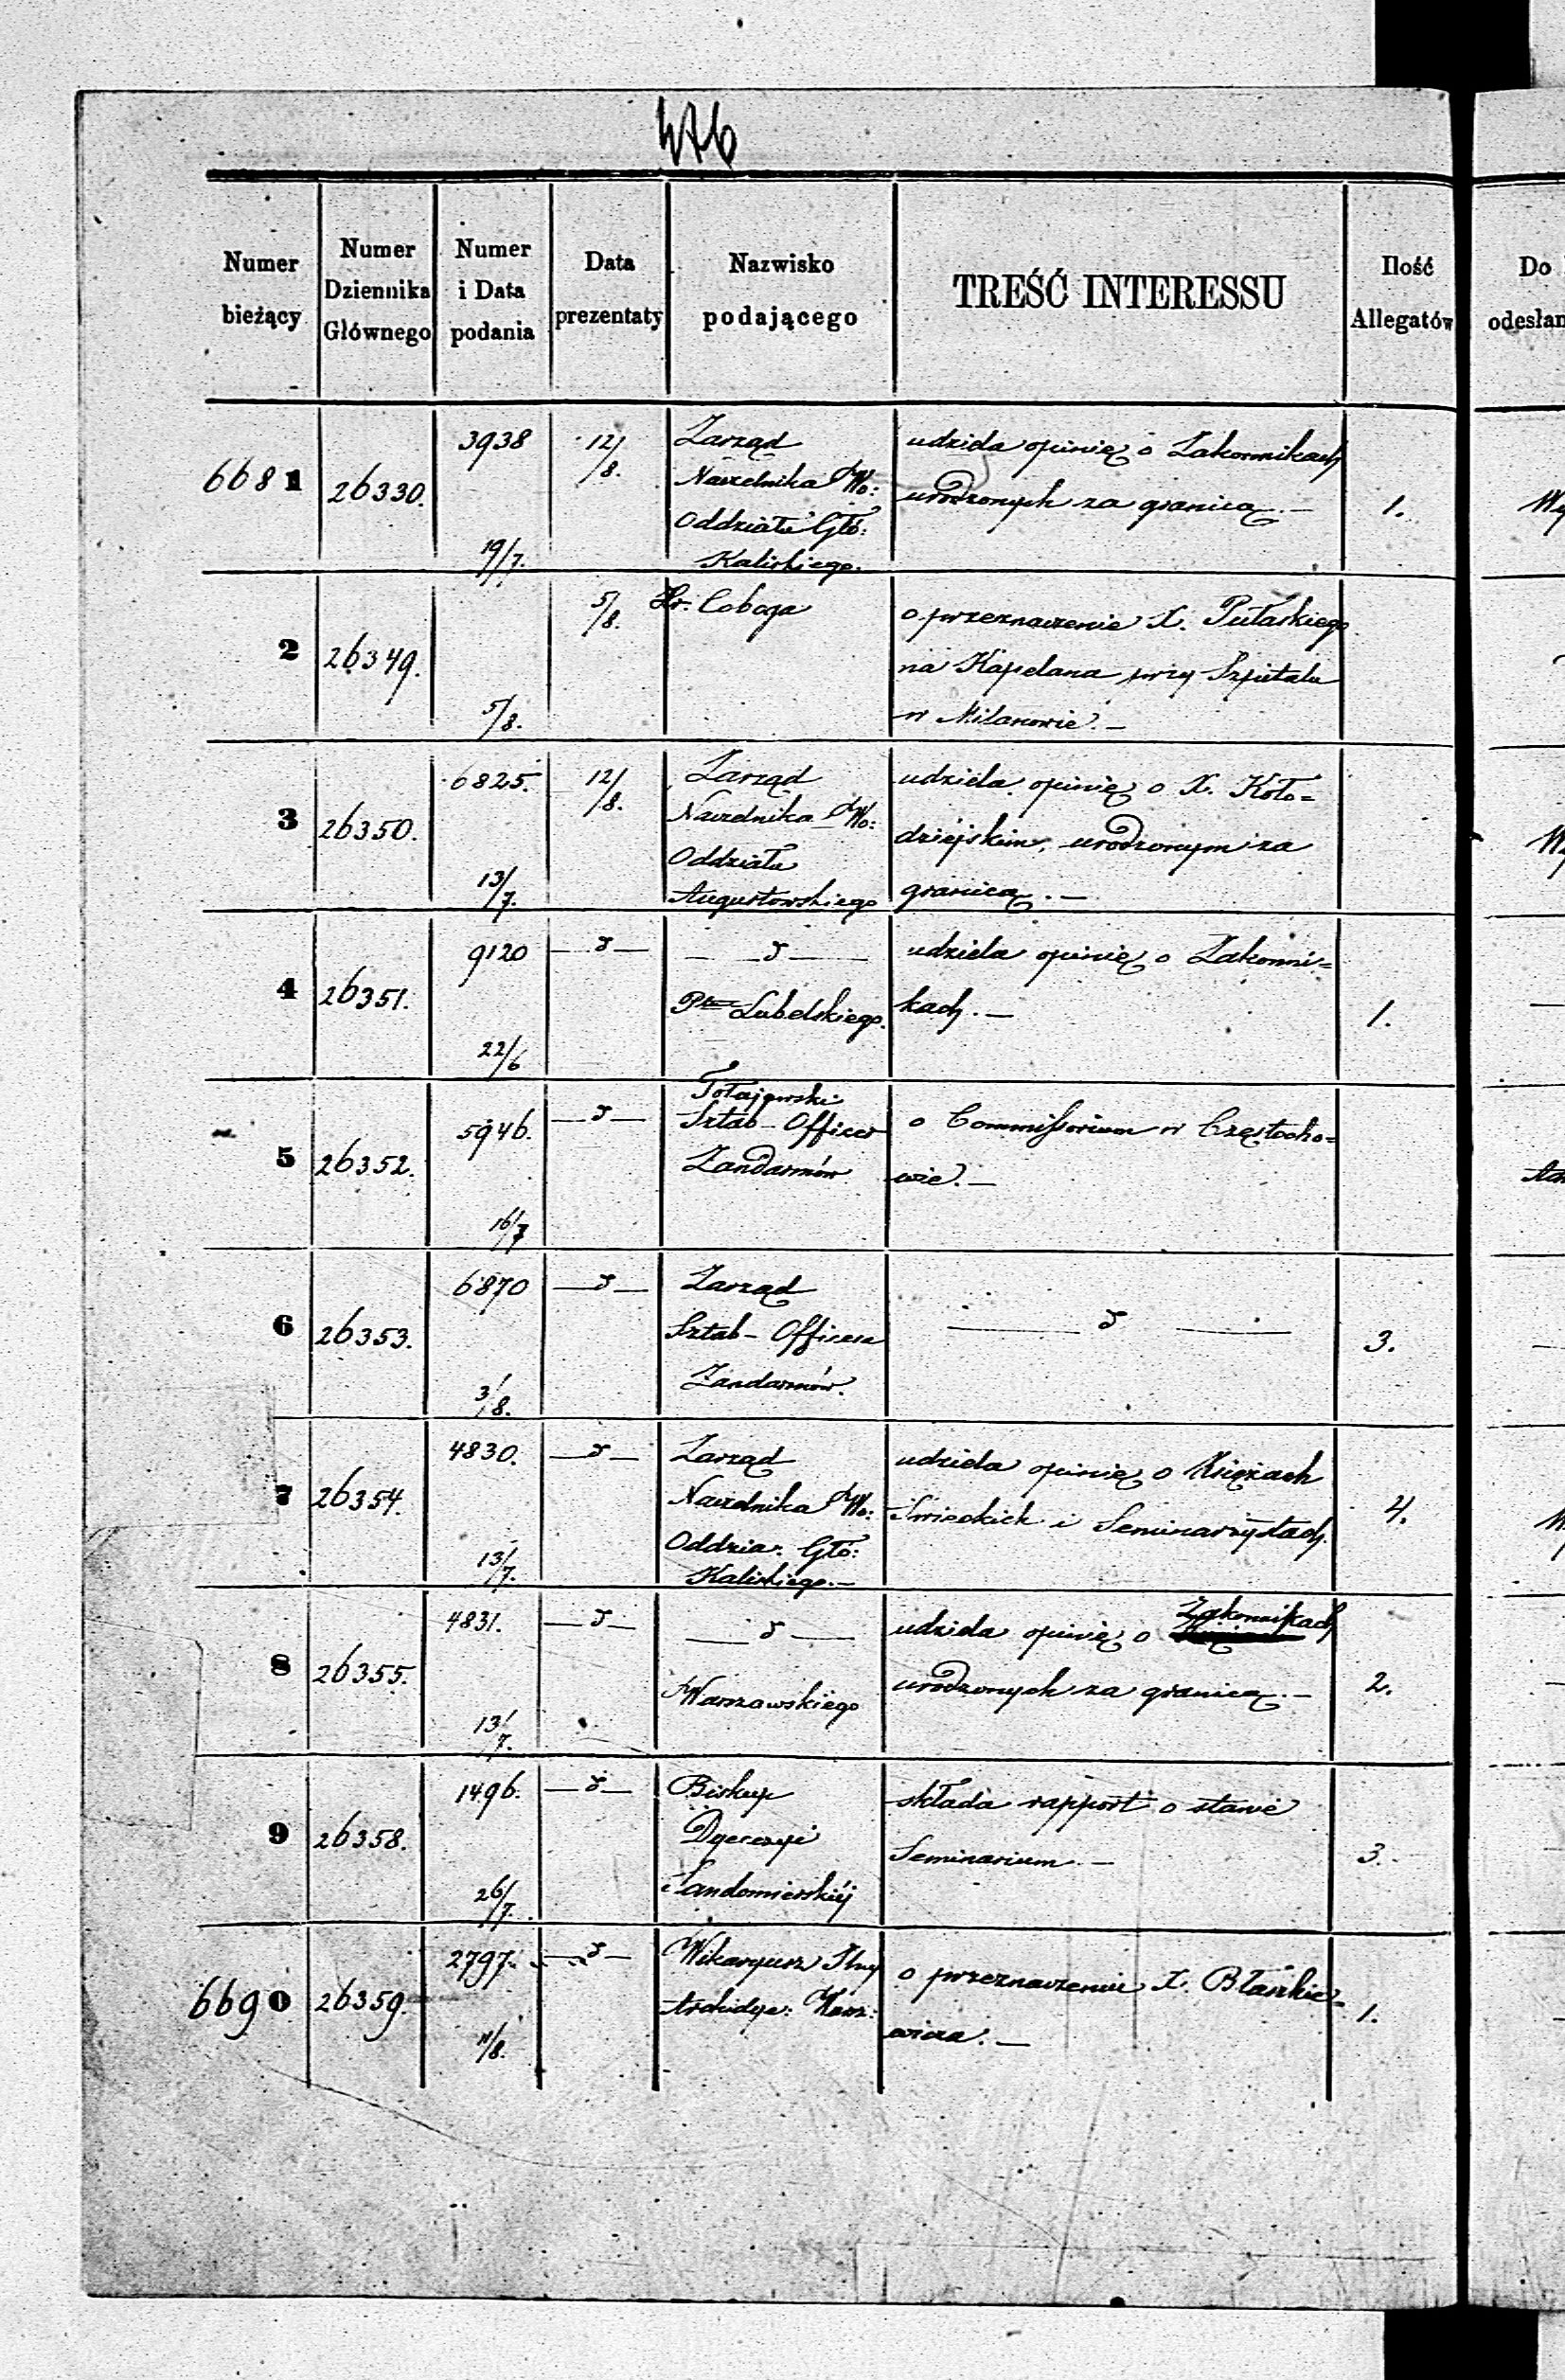 476
Numer bieżący
Numer Dziennika Głównego
Numer i Data podania
Data prezentaty
Nazwisko podającego
TREŚĆ INTERESSU
Ilość Allegatów
Do
odesłan
6681
26330.
3938
19/7.
12/8.
Zarząd
Naczelnika Wo:
Oddziału Głó:
Kaliskiego.
udziela opinię o Zakonnikach
urodzonych za granicą. —
1.
2
26349.
5/8.
5/8.
Hr. Caboga
o przeznaczenie X. Pułaskiego
na Kapelana przy Szpitalu
w Milanowie. —
3
26350.
6825.
13/7.
12/8.
Zarząd
Naczelnika Wo:
Oddziału
Augustowskiego
udziela opinię o X. Koło=
dziéjskim, urodzonym za
granicą. —
4
26351.
9120
22/6
— d —
— d —
Lubelskiego.
udziela opinię o Zakonni=
kach. —
1.
5
26352.
5946.
16/7
— d —
Sztab-Officer
Żandarmów
o Commissorium w Częstocho=
wie. —
6
26353.
6870
3/8.
— d —
Zarząd
Sztab-Officera
Żandarmów.
— d —
3.
7
26354.
4830.
13/7.
— d —
Zarząd
Naczelnika Wo:
Oddzia: Głó:
Kaliskiego. —
udziela opinię o Księżach
Swieckich i Seminarzystach.
4.
8
26355.
4831.
13/7.
— d —
— d —
Warszawskiego
udziela opinię o Zakonnikach
urodzonych za granicą. —
2.
9
26358.
1496.
26/7.
— d —
Biskup
Dyecezyi
Sandomierskiéj
składa rapport o stanie
Seminarium. —
3.
6690
26359.
2797.
11/8.
— d —
Wikaryusz
Archidye: Warsz:
o przeznaczenie X. Błaszkie=
wicza. —
1.